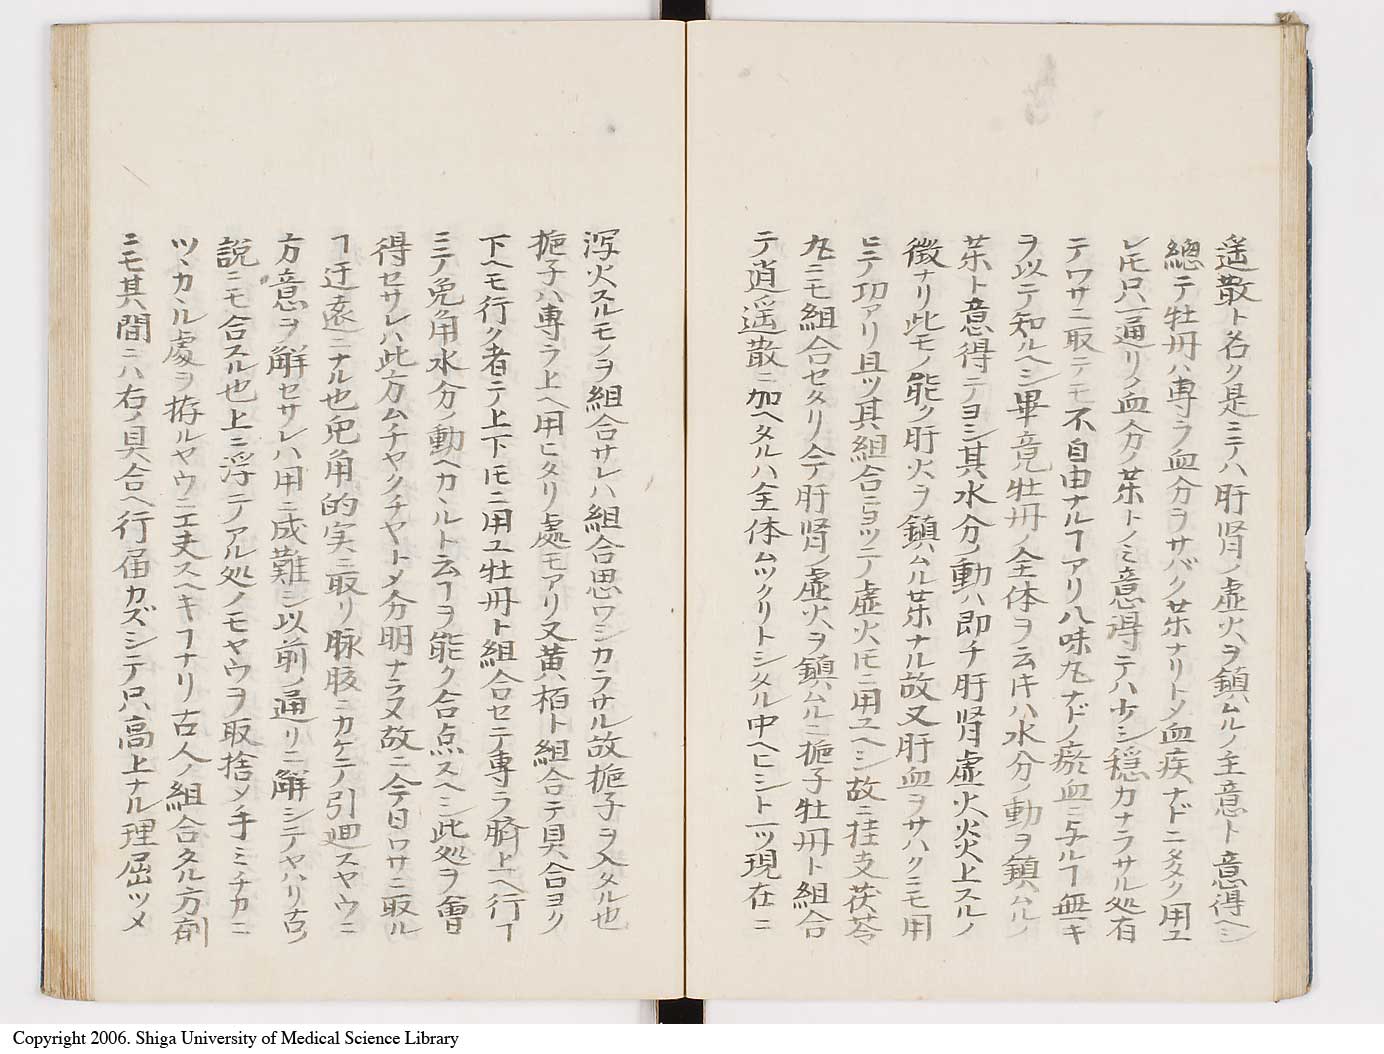 遥散ト名ク是ミテハ肝腎ノ虚火ヲ鎮ムルノ主意ト意得ヘシ
總テ牡丹ハ専ラ血分ヲサバク茱ナリトメ血疾ナドニタク用ユ
レ𪜈只一通リノ血分ノ茱トノミ意得テハ少シ穏カナラサル処有
テワサニ取テモ不自由ナルヿアリ八味丸ナドノ瘀血ニ与ルヿ無キ
ヲ以テ知ルヘシ畢竟牡丹ノ全体ヲ云𪜈ハ水分ノ動ヲ鎮ムルノ
茱ト意得テヨシ其水分ノ動ハ即チ肝腎虚火炎上スルノ
徴ナリ此モノ能ク肝火ヲ鎮ムル茱ナル故又肝血ヲサハクニモ用
ヒテ功アリ且ツ其組合ニヨツテ虚火𪜈ニ用ユヘシ故ニ桂支茯苓
丸ニモ組合セタリ今肝腎ノ虚火ヲ鎮ムルニ梔子牡丹ト組合
テ逍遥散ニ加ヘタルハ全体ムツクリトシタル中ヘヒシト一ツ現在ニ
瀉火スルモノヲ組合サレハ組合思ワシカラサル故梔子ヲ入タル也
梔子ハ専ラ上ヘ用ヒタリ處モアリ又黄栢ト組合テ具合ヨク
下ヘモ行ク者ニテ上下𪜈ニ用ユ牡丹ト組合セテ専ラ臍上ヘ行ヿ
ミテノ兎角水分ノ動ヘカヽルト云ヿヲ能ク合点スヘシ此処ヲ會
得セサレハ此方ムチヤクチヤトメ分明ナラヌ故ニ今日ワサニ取ル
ヿ迂遠ニナル也兎角的実ニ取リ脉腹ニカケテノ引廻スヤウニ
方意ヲ解セサレハ用ニ成難シ以前ノ通リニ解シテヤハリ古
説ニモ合スル也上ニ浮テアル処ノモヤウヲ取捨メ手ミチカニ
ツマカル處ヲ拵ルヤウニ工夫スヘキヿナリ古人ノ組合タル方剤
ニモ其間ニハ右ノ具合ヘ行届カズシテ只高上ナル理屈ツメ
Copyright 2006. Shiga University of Medical Science Library